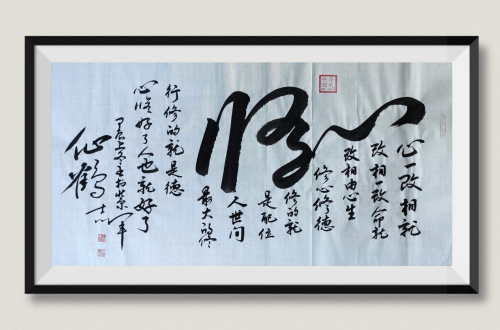 心修
心一改相就
改相一改命就
改相由心生
修心修德
修的就
是配位
人世间
最大的修
行修的就是德
心修好了人也就好了
仙鹤